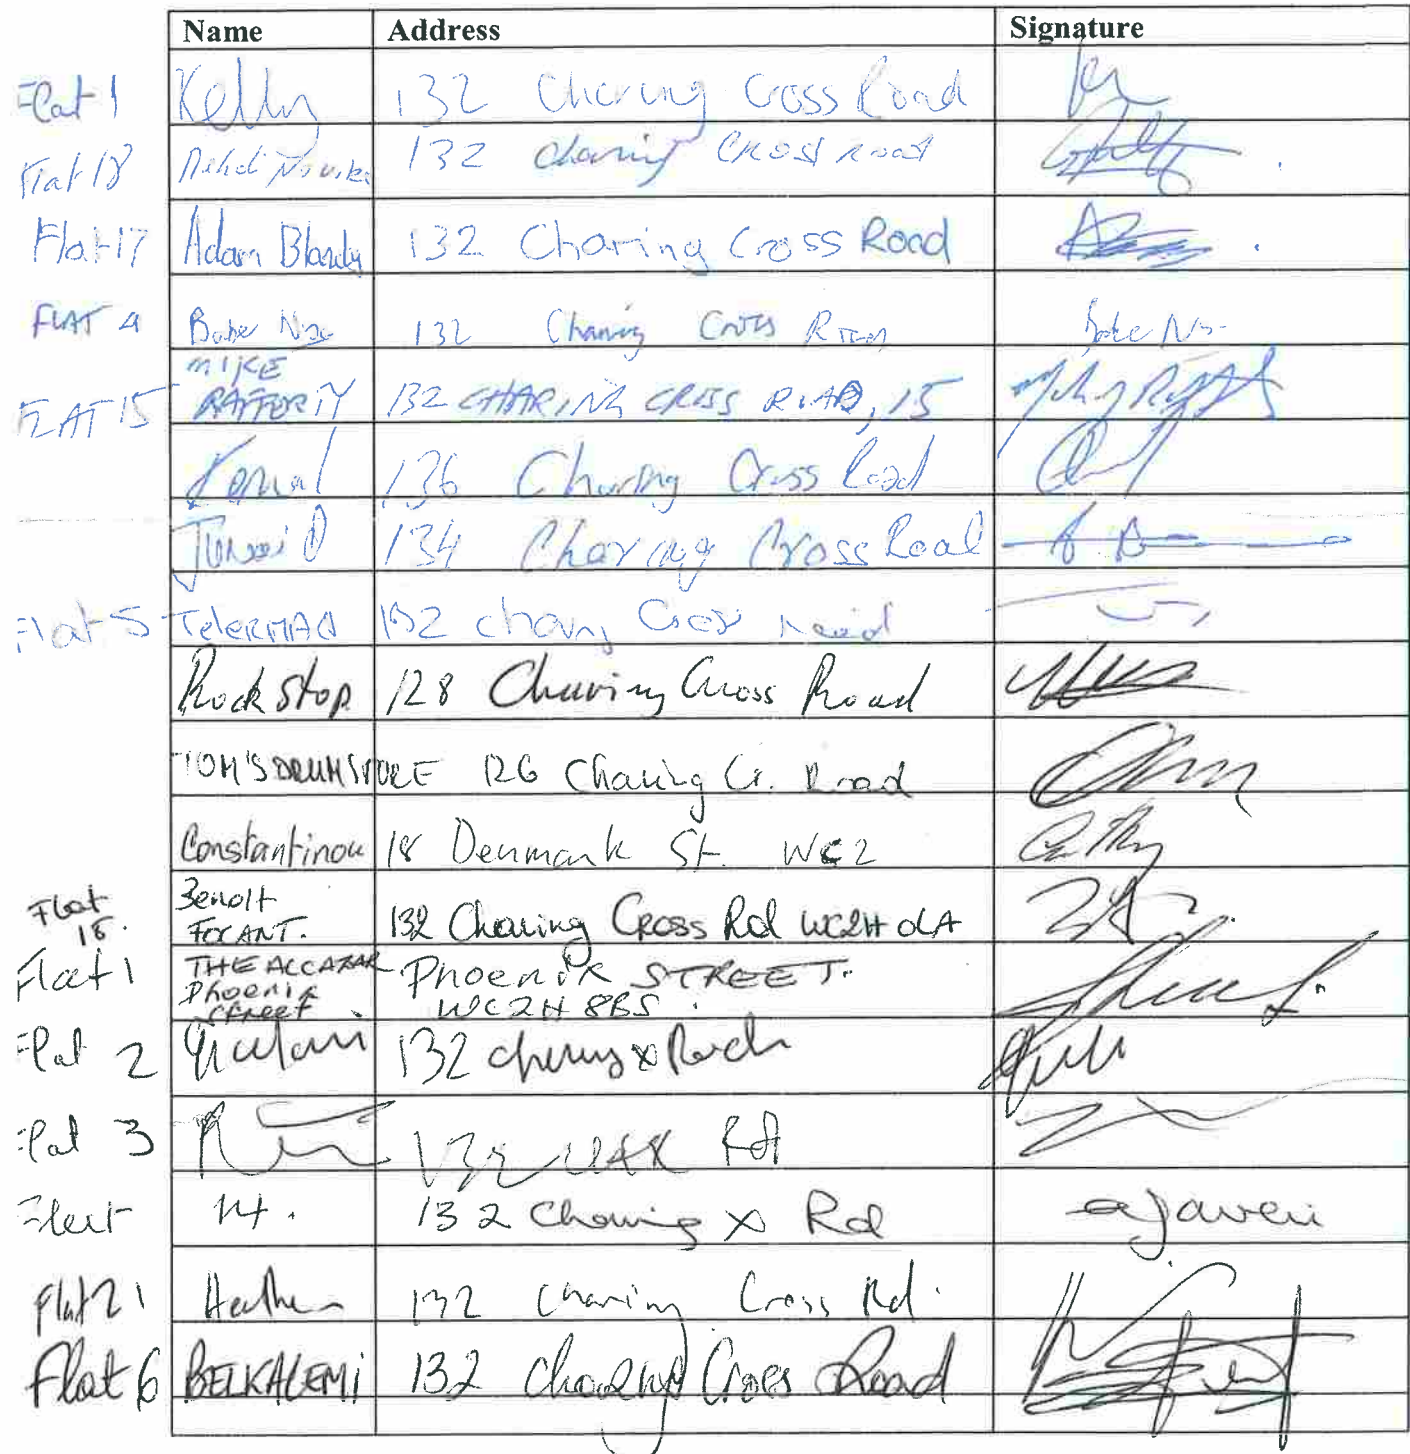 Name Address Signature
Flat 1 Kelly 132 Charing Cross Road
Flat 18 132 Charing Cross Road
Flat 17 Adam Blandy 132 Charing Cross Road
FLAT 4 132 Charing Cross Road
MIKE
FLAT 15 RAFFERTY 132 CHARING CROSS ROAD, 15
Kemal 136 Charing Cross Road
134 Charing Cross Road
Flat 5 132 Charing Cross Road
Rockstop 128 Charing Cross Road
TOM'S DRUM STORE 126 Charing Cr. Road
Constantinou 18 Denmark St. WC2
Flat Benoit
FOCANT. 132 Charing Cross Rd WC2H 0LA
Flat 1 THE ALCAZAR Phoenix STREET.
Phoenix WC2H 8BS.
Street
Flat 2 132 Charing x Road
Flat 3 132 Rd
Flat 14. 132 Charing X Rd ajaveri
Flat 21 Heather 132 Charing Cross Rd.
Flat 6 BELKACEMI 132 Charing Cross Road